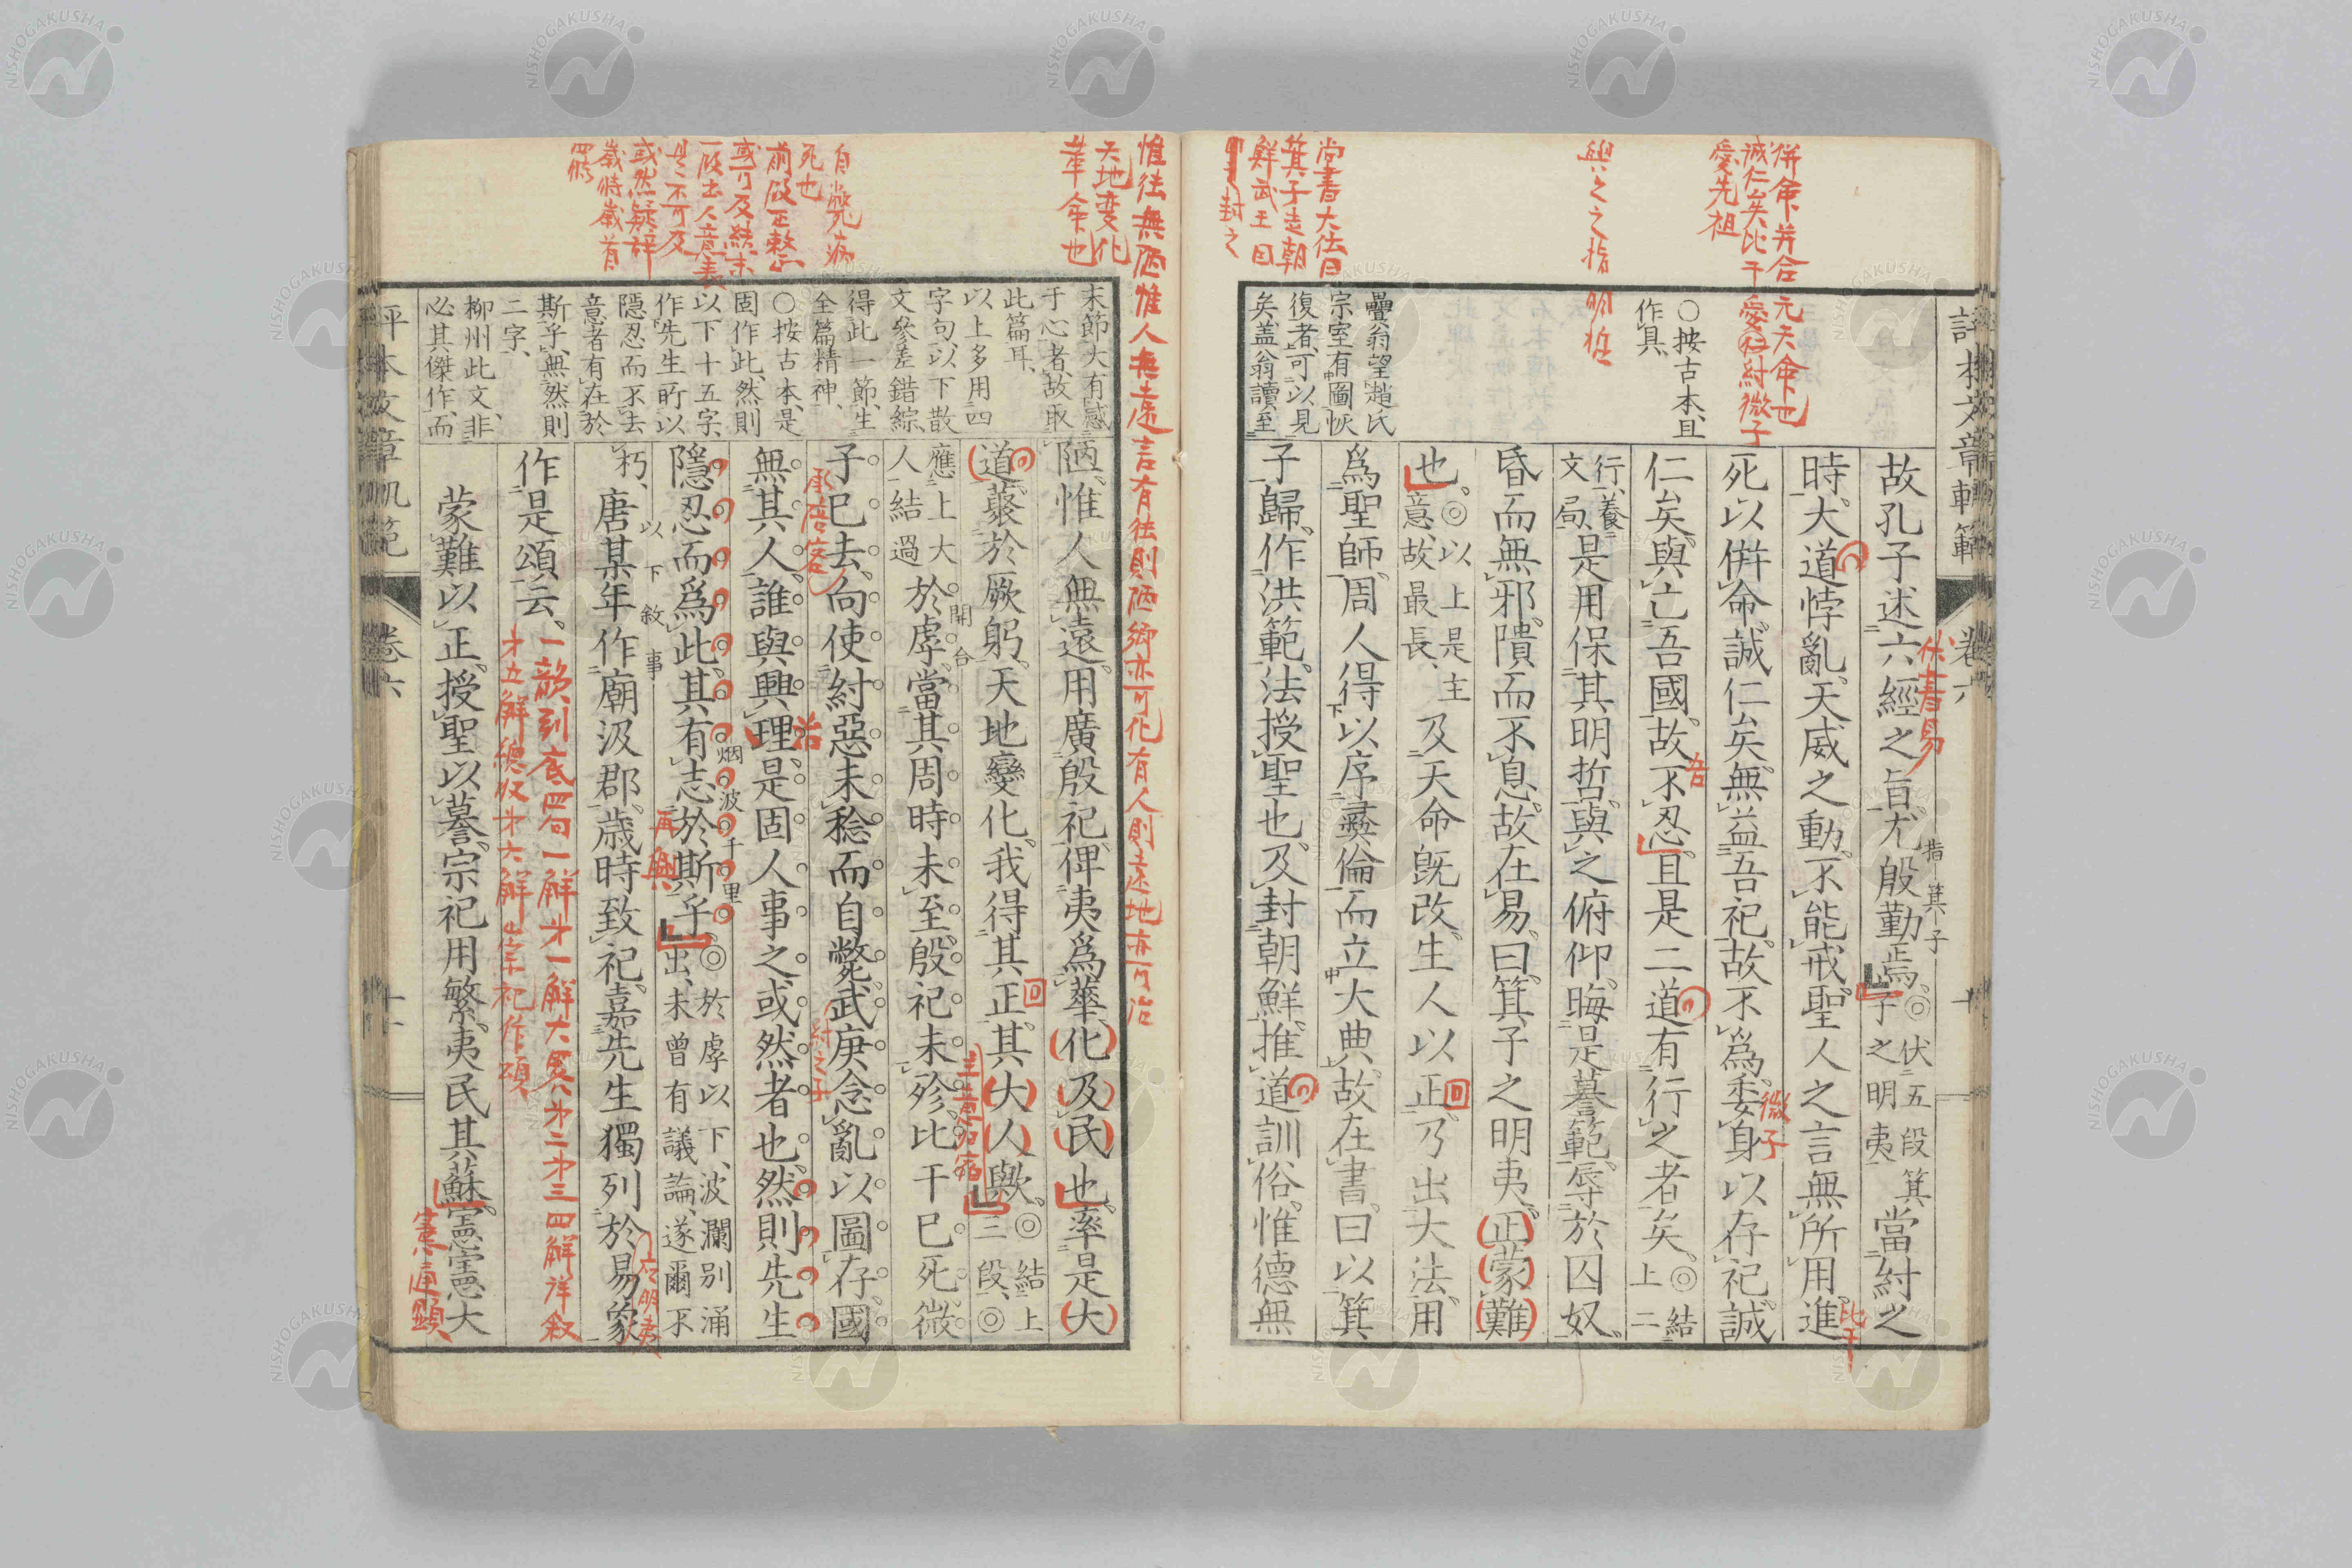 評本文章軌範
卷六
併命并合元天命也
誠仁矣比干愛和紂微子
愛先祖
與之之指明哲
尚書大傳曰
箕子走朝
鮮武王因
封之
〇按古本、且
作具、
疊翁望趙氏
宗室有圖恢
復者、可以見
矣、蓋翁讀至
故孔子述六經之旨、尤殷勤焉、◎伏五段箕子之明夷當紂之
伏書易
指箕子
時、大道悖亂、天威之動、不能戒、聖人之言無所用、進
比干
死以倂命、誠仁矣、無益吾祀、故不爲、委身以存祀、誠
微子
仁矣、與亡吾國、故不忍、且是二道有行之者矣、◎結上二
吾
行、養文局、是用保其明哲、與之俯仰、晦是謩範、辱於囚奴、
昏而無邪、隤而不息、故在易、曰、箕子之明夷、正蒙難
也、◎以上是主意、故最長、及天命旣改、生人以正、乃出大法、用
爲聖師、周人得以序彝倫、而立大典、故在書、曰以箕
子歸、作洪範、法授聖也、及封朝鮮、推道訓俗、惟德無
惟往無陋惟人無遠言有法則陋鄉亦可化有人則遠地亦可治
天地変化
革命也
自斃病
死也
或然疑辭
末節大有感
于心者、故取
此篇耳、
以上多用四
字句、以下散
文參差錯綜、
得此一節、生
全篇精神、
〇按古本、是
固作此、然則
以下十五字、
作先生所以
隱忍而不去
意者有在於
斯乎、無然則
二字、
柳州此文、非
必其傑作、而
陋、惟人無遠、用廣殷祀、俾夷爲華、化及民也、率是大
道、藂於厥躬、天地變化、我得其正、其大人歟、◎結上三段、◎
應上大人結過於虖、當其周時未至、殷祀未殄、比干已死、微
開合
子已去、向使紂惡未稔而自斃、武庚念亂以圖存、國
紂之子
無其人、誰與興理、是固人事之或然者也、然則先生
治
隱忍而爲此、其有志於斯乎、◎於虖以下、波瀾別涌出、未曾有議論、遂爾不
烟波千里
再興
朽、唐某年作廟汲郡、歲時致祀、嘉先生獨列於易象、
以下敘事
作是頌云、
一韻到底四句一解才一解大畧才二才三四解詳敘
才五解總收才六解出宗祀作頌
蒙難以正、授聖以謩、宗祀用繁、夷民其蘇、憲憲大
憲憲顯
評本文章軌範
卷六